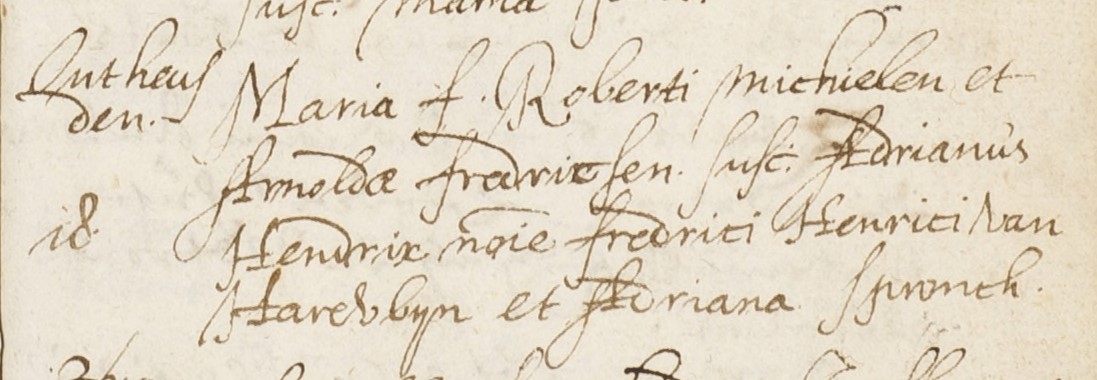 susc. Maria
Lutheus
den.
Maria f. Roberti Michielen et
Arnoldæ Fredricsen. susc. Adrianus
18
Hendrix nōie Fredrici Henrici Van
et Adriana Spronch.